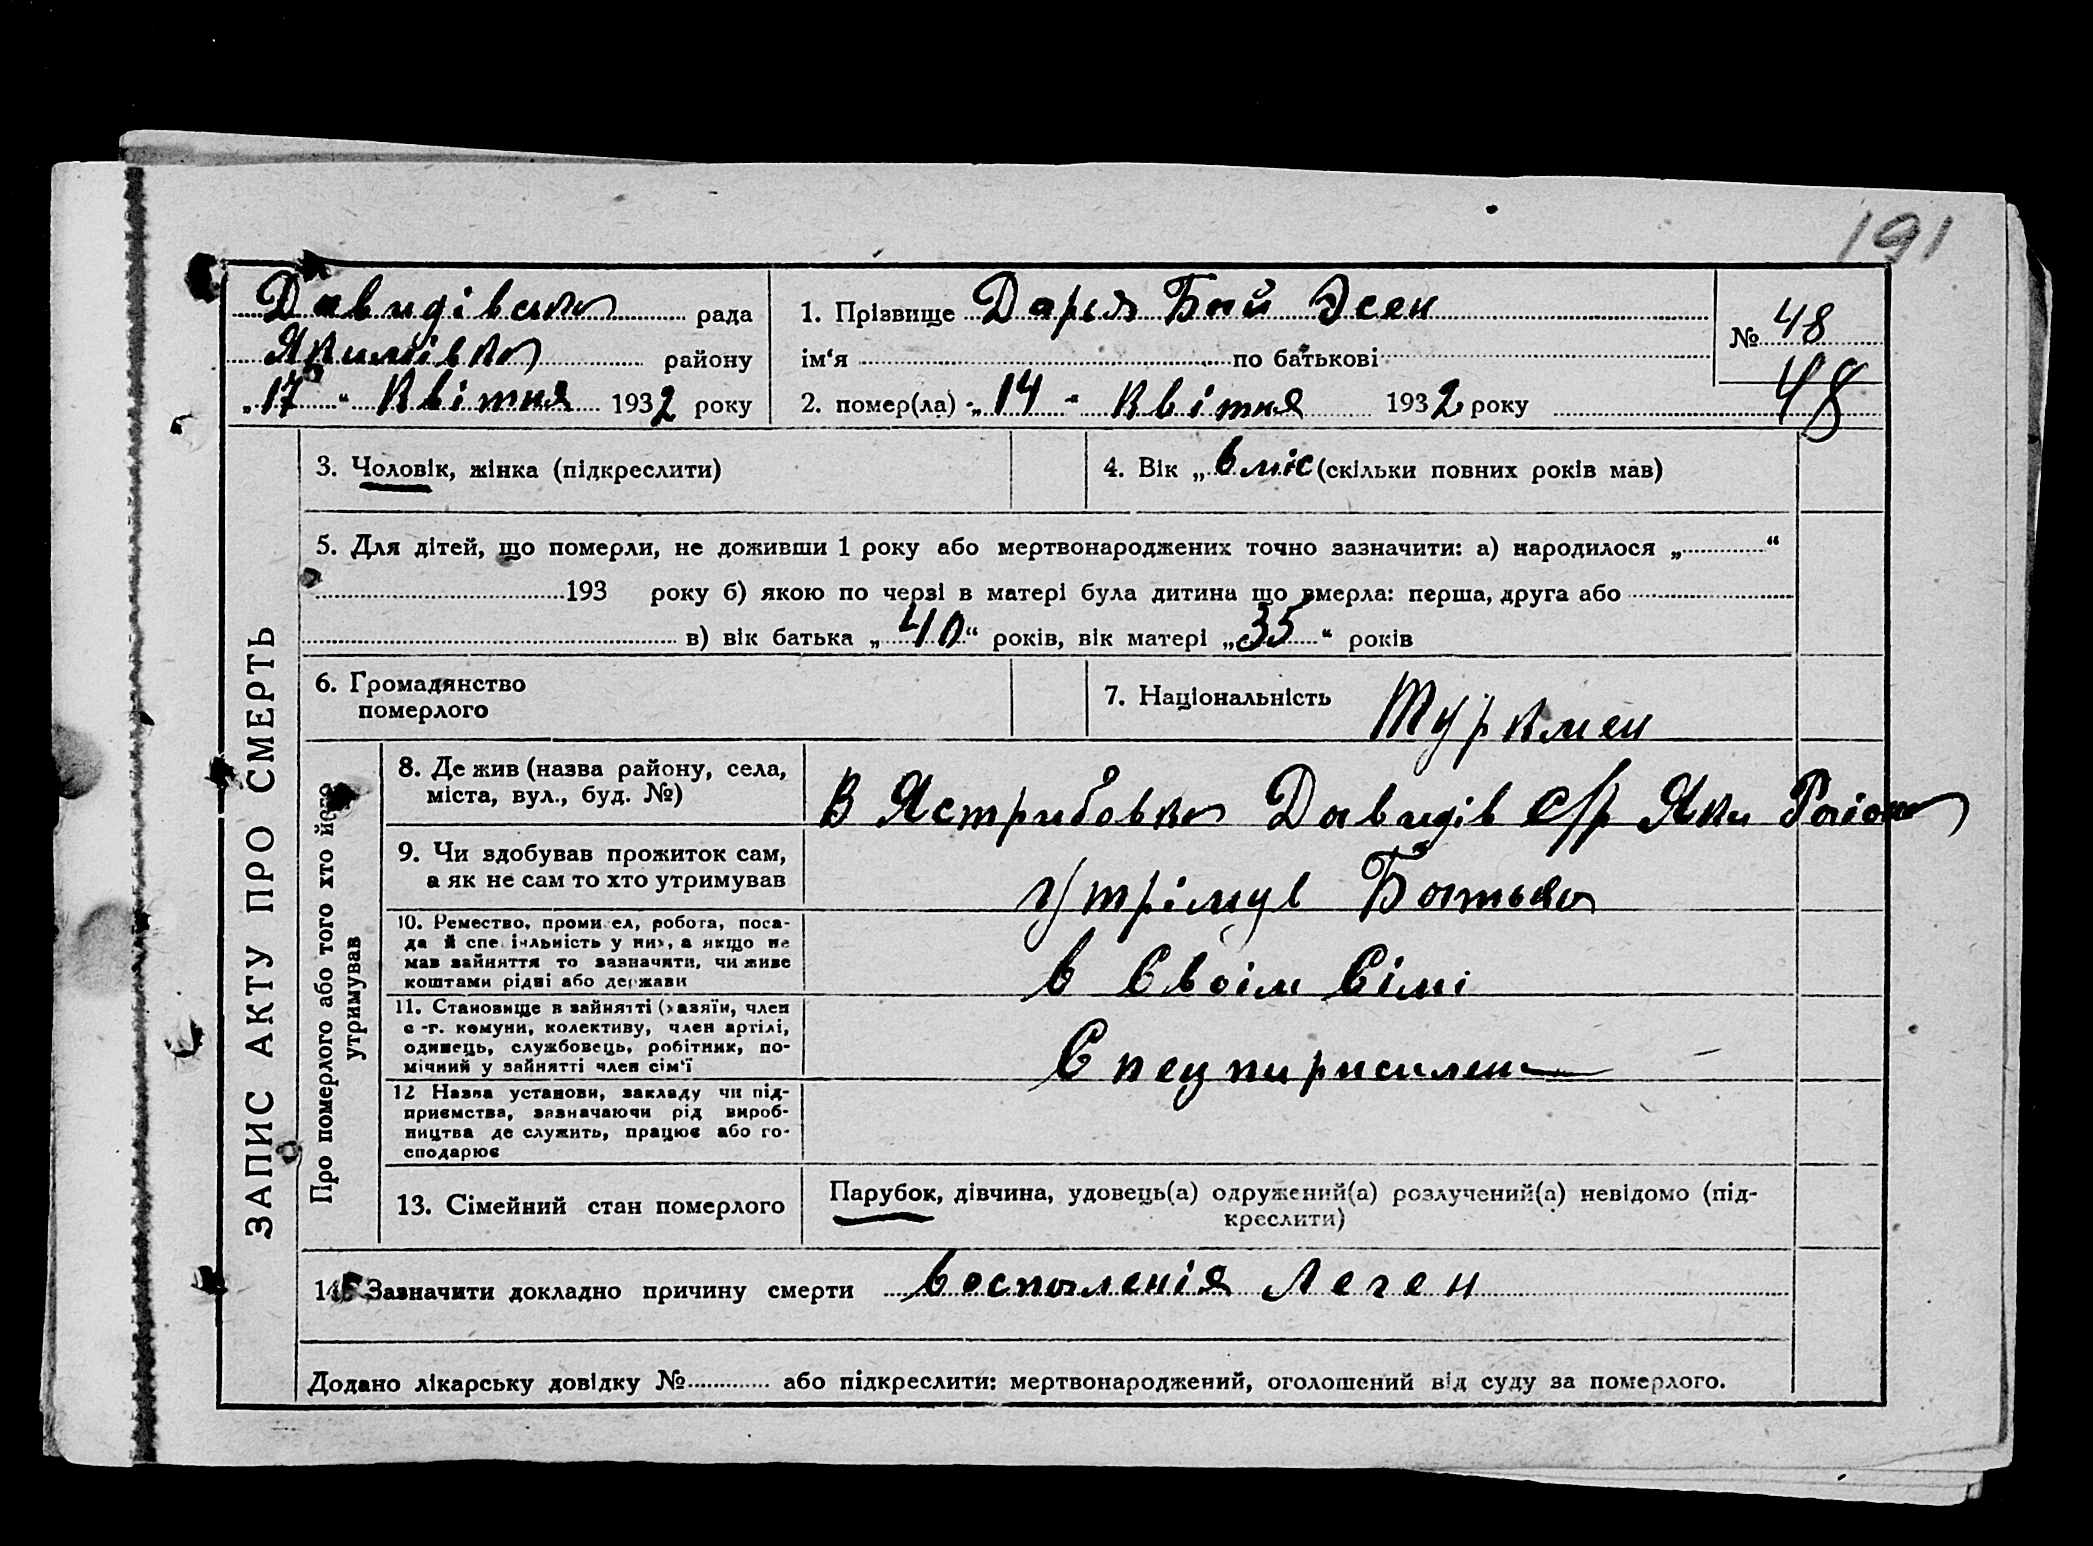 191
Давидівська рада
Якимівка району
„17“ Квітня 1932 року
1. Прізвище Дарья Бай Эсен
ім‘я по батькові
2. помер(ла) „14“ Квітня 1932 року
№ 48
48
ЗАПИС АКТУ ПРО СМЕРТЬ
3. Чоловік, жінка (підкреслити)
4. Вік „6 міс (скільки повних років мав)
5. Для дітей, що померли, не доживши 1 року або мертвонароджених точно зазначити: а) народилося „ “
193 року б) якою по черзі в матері була дитина що вмерла: перша, друга або
в) вік батька „40“ років, вік матері „35“ років
6. Громадянство
померлого
7. Національність Туркмен
Про померлого або того хто його
утримував
8. Де жив (назва району, села,
міста, вул., буд. №)
В Ястрибовка Давидів с/р Яки Район
9. Чи здобував прожиток сам,
а як не сам то хто утримував
Утрімув Батька
10. Ремество, промисел, робота, поса-
да й спеціяльність у них, а якщо не
мав зайняття то зазначити, чи живе
коштами рідні або держави
в Своім Сімі
11. Становище в зайнятті (хазяїн, член
с.-г. комуни, колективу, член артілі,
одинець, службовець, робітник, по-
мічний у зайнятті член сім‘ї
12 Назва установи, закладу чи під-
приємства, зазначаючи рід вироб-
ництва де служить, працює або го-
сподарює
13. Сімейний стан померлого
Парубок, дівчина, удовець(а) одружений(а) розлучений(а) невідомо (під-
креслити)
14. Зазначити докладно причину смерти Воспаленія Леген
Додано лікарську довідку № або підкреслити: мертвонароджений, оголошений від суду за померлого.